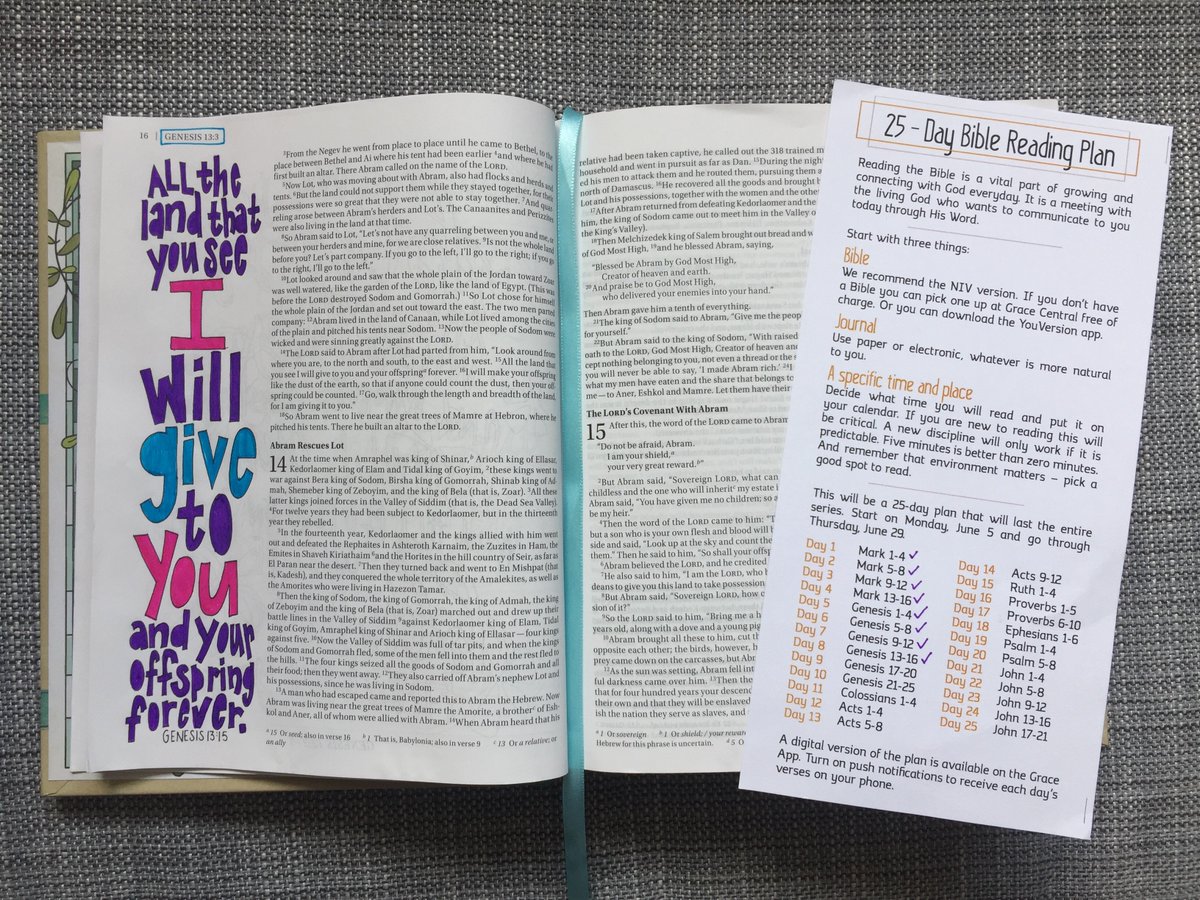 16 | GENESIS 13:3
ALL the
land that
you see
I
will
give
to
you
and your
offspring
forever.
GENESIS 13:15
³From the Negev he went from place to place until he came to Bethel, to the
place between Bethel and Ai where his tent had been earlier ⁴and where he had
first built an altar. There Abram called on the name of the LORD.
⁵Now Lot, who was moving about with Abram, also had flocks and herds and
tents. ⁶But the land could not support them while they stayed together, for their
possessions were so great that they were not able to stay together. ⁷And quar-
reling arose between Abram's herders and Lot's. The Canaanites and Perizzites
were also living in the land at that time.
⁸So Abram said to Lot, "Let's not have any quarreling between you and me, or
between your herders and mine, for we are close relatives. ⁹Is not the whole land
before you? Let's part company. If you go to the left, I'll go to the right; if you go
to the right, I'll go to the left."
¹⁰Lot looked around and saw that the whole plain of the Jordan toward Zoar
was well watered, like the garden of the LORD, like the land of Egypt. (This was
before the LORD destroyed Sodom and Gomorrah.) ¹¹So Lot chose for himself
the whole plain of the Jordan and set out toward the east. The two men parted
company: ¹²Abram lived in the land of Canaan, while Lot lived among the cities
of the plain and pitched his tents near Sodom. ¹³Now the people of Sodom were
wicked and were sinning greatly against the LORD.
¹⁴The LORD said to Abram after Lot had parted from him, "Look around from
where you are, to the north and south, to the east and west. ¹⁵All the land that
you see I will give to you and your offspringᵃ forever. ¹⁶I will make your offspring
like the dust of the earth, so that if anyone could count the dust, then your off-
spring could be counted. ¹⁷Go, walk through the length and breadth of the land,
for I am giving it to you."
¹⁸So Abram went to live near the great trees of Mamre at Hebron, where he
pitched his tents. There he built an altar to the LORD.
Abram Rescues Lot
14 At the time when Amraphel was king of Shinar,ᵇ Arioch king of Ellasar,
Kedorlaomer king of Elam and Tidal king of Goyim, ²these kings went to
war against Bera king of Sodom, Birsha king of Gomorrah, Shinab king of Ad-
mah, Shemeber king of Zeboyim, and the king of Bela (that is, Zoar). ³All these
latter kings joined forces in the Valley of Siddim (that is, the Dead Sea Valley).
⁴For twelve years they had been subject to Kedorlaomer, but in the thirteenth
year they rebelled.
⁵In the fourteenth year, Kedorlaomer and the kings allied with him went
out and defeated the Rephaites in Ashteroth Karnaim, the Zuzites in Ham, the
Emites in Shaveh Kiriathaim ⁶and the Horites in the hill country of Seir, as far as
El Paran near the desert. ⁷Then they turned back and went to En Mishpat (that
is, Kadesh), and they conquered the whole territory of the Amalekites, as well as
the Amorites who were living in Hazezon Tamar.
⁸Then the king of Sodom, the king of Gomorrah, the king of Admah, the king
of Zeboyim and the king of Bela (that is, Zoar) marched out and drew up their
battle lines in the Valley of Siddim ⁹against Kedorlaomer king of Elam, Tidal
king of Goyim, Amraphel king of Shinar and Arioch king of Ellasar — four kings
against five. ¹⁰Now the Valley of Siddim was full of tar pits, and when the kings
of Sodom and Gomorrah fled, some of the men fell into them and the rest fled to
the hills. ¹¹The four kings seized all the goods of Sodom and Gomorrah and all
their food; then they went away. ¹²They also carried off Abram's nephew Lot and
his possessions, since he was living in Sodom.
¹³A man who had escaped came and reported this to Abram the Hebrew. Now
Abram was living near the great trees of Mamre the Amorite, a brotherᶜ of Esh-
kol and Aner, all of whom were allied with Abram. ¹⁴When Abram heard that his
ᵃ 15 Or seed; also in verse 16 ᵇ 1 That is, Babylonia; also in verse 9 ᶜ 13 Or a relative; or
an ally
relative had been taken captive, he called out the 318 trained m
household and went in pursuit as far as Dan. ¹⁵During the night
ed his men to attack them and he routed them, pursuing them a
north of Damascus. ¹⁶He recovered all the goods and brought b
Lot and his possessions, together with the women and the othe
¹⁷After Abram returned from defeating Kedorlaomer and the
him, the king of Sodom came out to meet him in the Valley o
the King's Valley).
¹⁸Then Melchizedek king of Salem brought out bread and w
of God Most High, ¹⁹and he blessed Abram, saying,
"Blessed be Abram by God Most High,
Creator of heaven and earth.
²⁰And praise be to God Most High,
who delivered your enemies into your hand."
Then Abram gave him a tenth of everything.
²¹The king of Sodom said to Abram, "Give me the peop
for yourself."
²²But Abram said to the king of Sodom, "With raised
oath to the LORD, God Most High, Creator of heaven and
cept nothing belonging to you, not even a thread or the s
you will never be able to say, 'I made Abram rich.' ²⁴I
what my men have eaten and the share that belongs to
me — to Aner, Eshkol and Mamre. Let them have their
The LORD's Covenant With Abram
15 After this, the word of the LORD came to Abram
"Do not be afraid, Abram.
I am your shield,ᵃ
your very great reward.ᵇ"
²But Abram said, "Sovereign LORD, what can
childless and the one who will inheritᶜ my estate i
Abram said, "You have given me no children; so a
be my heir."
⁴Then the word of the LORD came to him: "T
but a son who is your own flesh and blood will b
side and said, "Look up at the sky and count the
them." Then he said to him, "So shall your offsp
⁶Abram believed the LORD, and he credited
⁷He also said to him, "I am the LORD, who b
deans to give you this land to take possession
⁸But Abram said, "Sovereign LORD, how c
sion of it?"
⁹So the LORD said to him, "Bring me a h
years old, along with a dove and a young pig
¹⁰Abram brought all these to him, cut th
opposite each other; the birds, however, h
prey came down on the carcasses, but Ab
¹²As the sun was setting, Abram fell int
ful darkness came over him. ¹³Then the
that for four hundred years your descen
their own and that they will be enslaved
ish the nation they serve as slaves, and
ᵃ 1 Or sovereign ᵇ 1 Or shield; / your rewar
Hebrew for this phrase is uncertain. ᵈ 5 O
25 - Day Bible Reading Plan
Reading the Bible is a vital part of growing and
connecting with God everyday. It is a meeting with
the living God who wants to communicate to you
today through His Word.
Start with three things:
Bible
We recommend the NIV version. If you don't have
a Bible you can pick one up at Grace Central free of
charge. Or you can download the YouVersion app.
Journal
Use paper or electronic, whatever is more natural
to you.
A specific time and place
Decide what time you will read and put it on
your calendar. If you are new to reading this will
be critical. A new discipline will only work if it is
predictable. Five minutes is better than zero minutes.
And remember that environment matters – pick a
good spot to read.
This will be a 25-day plan that will last the entire
series. Start on Monday, June 5 and go through
Thursday, June 29.
Day 1 Mark 1-4 ✓
Day 2 Mark 5-8 ✓
Day 3 Mark 9-12 ✓
Day 4 Mark 13-16 ✓
Day 5 Genesis 1-4 ✓
Day 6 Genesis 5-8 ✓
Day 7 Genesis 9-12 ✓
Day 8 Genesis 13-16 ✓
Day 9 Genesis 17-20
Day 10 Genesis 21-25
Day 11 Colossians 1-4
Day 12 Acts 1-4
Day 13 Acts 5-8
Day 14 Acts 9-12
Day 15 Ruth 1-4
Day 16 Proverbs 1-5
Day 17 Proverbs 6-10
Day 18 Ephesians 1-6
Day 19 Psalm 1-4
Day 20 Psalm 5-8
Day 21 John 1-4
Day 22 John 5-8
Day 23 John 9-12
Day 24 John 13-16
Day 25 John 17-21
A digital version of the plan is available on the Grace
App. Turn on push notifications to receive each day's
verses on your phone.